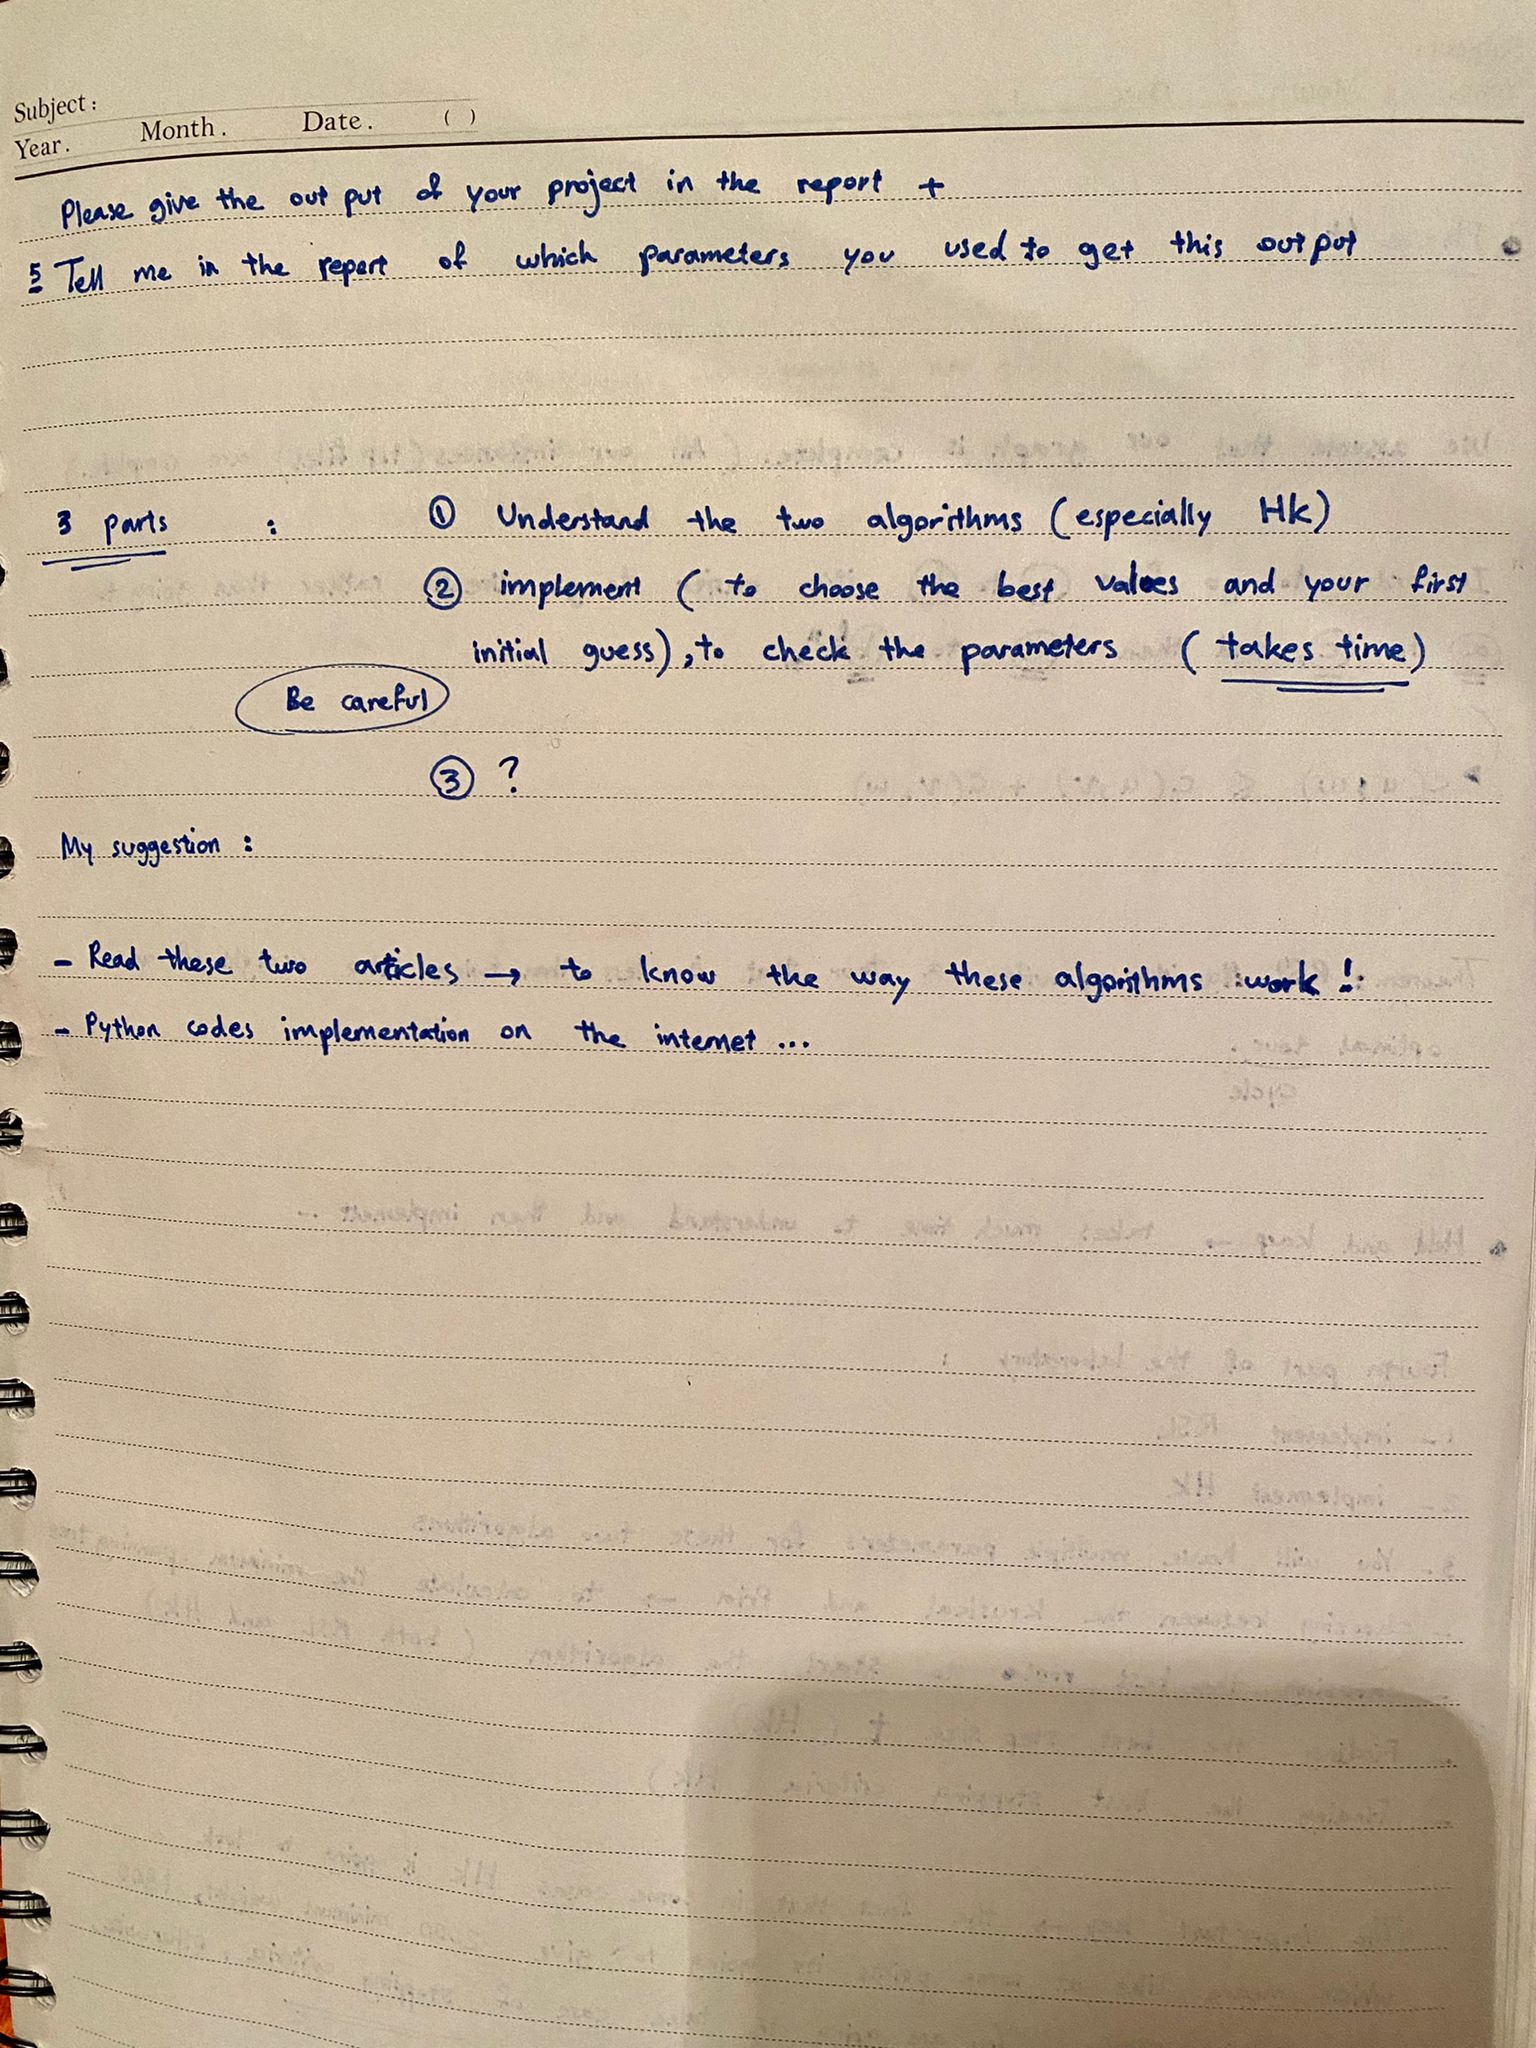 Subject :
Year. Month. Date. ( )
Please give the out put of your project in the report +
5 Tell me in the report of which parameters you used to get this output
3 parts : ① Understand the two algorithms (especially Hk)
② implement ( to choose the best values and your first
initial guess), to check the parameters ( takes time)
Be careful
③ ?
My suggestion :
- Read these two articles → to know the way these algorithms work !
- Python codes implementation on the internet ...